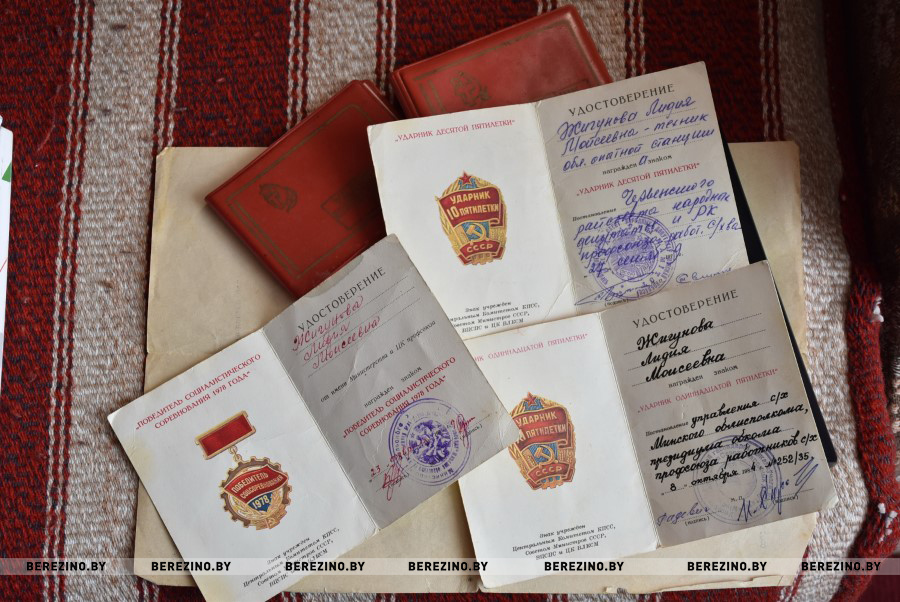 „УДАРНИК ДЕСЯТОЙ ПЯТИЛЕТКИ“
УДАРНИК
10 ПЯТИЛЕТКИ
СССР
Знак учрежден
Центральным Комитетом КПСС,
Советом Министров СССР,
ВЦСПС и ЦК ВЛКСМ
УДОСТОВЕРЕНИЕ
Жигунова Лидия
Моисеевна - техник
обл. опытной станции
награжден а знаком
„УДАРНИК ДЕСЯТОЙ ПЯТИЛЕТКИ“
Постановление Червенского
народн
и РК
профсоюза работ. с/х-ва
„ПОБЕДИТЕЛЬ СОЦИАЛИСТИЧЕСКОГО
СОРЕВНОВАНИЯ 1978 ГОДА“
ПОБЕДИТЕЛЬ
СОЦСОРЕВНОВАНИЯ
1978
Знак учрежден
Центральным Комитетом КПСС,
Советом Министров СССР,
ВЦСПС и ЦК ВЛКСМ
УДОСТОВЕРЕНИЕ
Жигунова
Лидия
Моисеевна
от имени Министерства и ЦК профсоюза
награжден знаком
„ПОБЕДИТЕЛЬ СОЦИАЛИСТИЧЕСКОГО
СОРЕВНОВАНИЯ 1978 ГОДА“
ОДИННАДЦАТОЙ ПЯТИЛЕТКИ“
УДАРНИК
ПЯТИЛЕТКИ
СССР
Знак учрежден
Центральным Комитетом КПСС,
Советом Министров СССР,
ВЦСПС и ЦК ВЛКСМ
УДОСТОВЕРЕНИЕ
Жигунова
Лидия
Моисеевна
награжден знаком
„УДАРНИК ОДИННАДЦАТОЙ ПЯТИЛЕТКИ“
Постановление управления с/х
Минского облисполкома,
президиума обкома
профсоюза работников с/х
8 октября №252/35
М.П.
(подпись) (подпись)
BEREZINO.BY BEREZINO.BY BEREZINO.BY BEREZINO.BY BEREZINO.BY BEREZINO.BY BEREZINO.BY